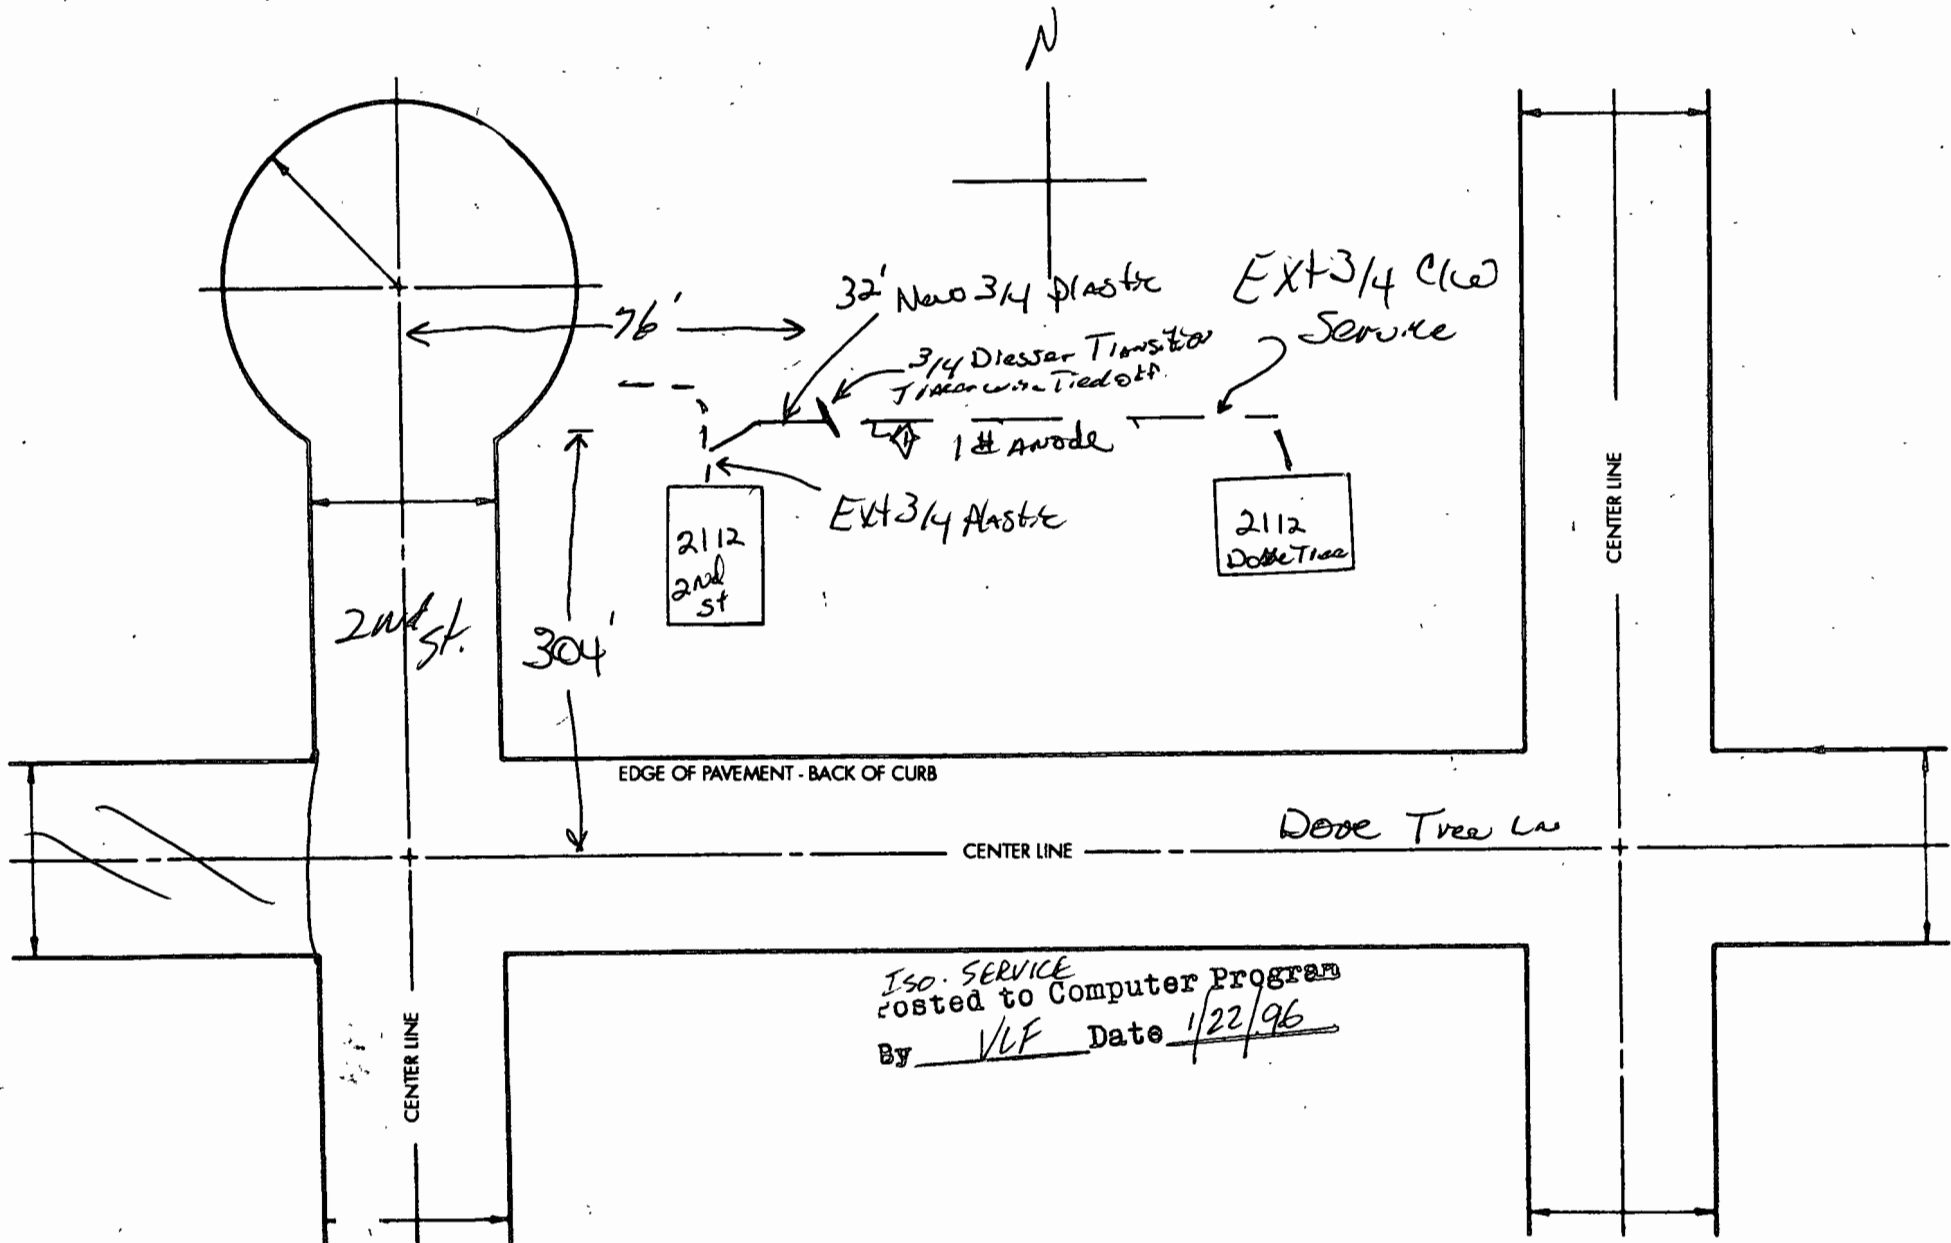 N
76'
32' New 3/4 Plastic
Ext 3/4 C/W
Service
3/4 Dresser Transition
Tracer wire Tied off.
1# Anode
Ext 3/4 Plastic
2112
2nd
St
2112
Dove Tree
CENTER LINE
2nd
St.
304'
EDGE OF PAVEMENT - BACK OF CURB
Dove Tree Ln
CENTER LINE
ISO. SERVICE
Posted to Computer Program
By VLF Date 1/22/96
CENTER LINE